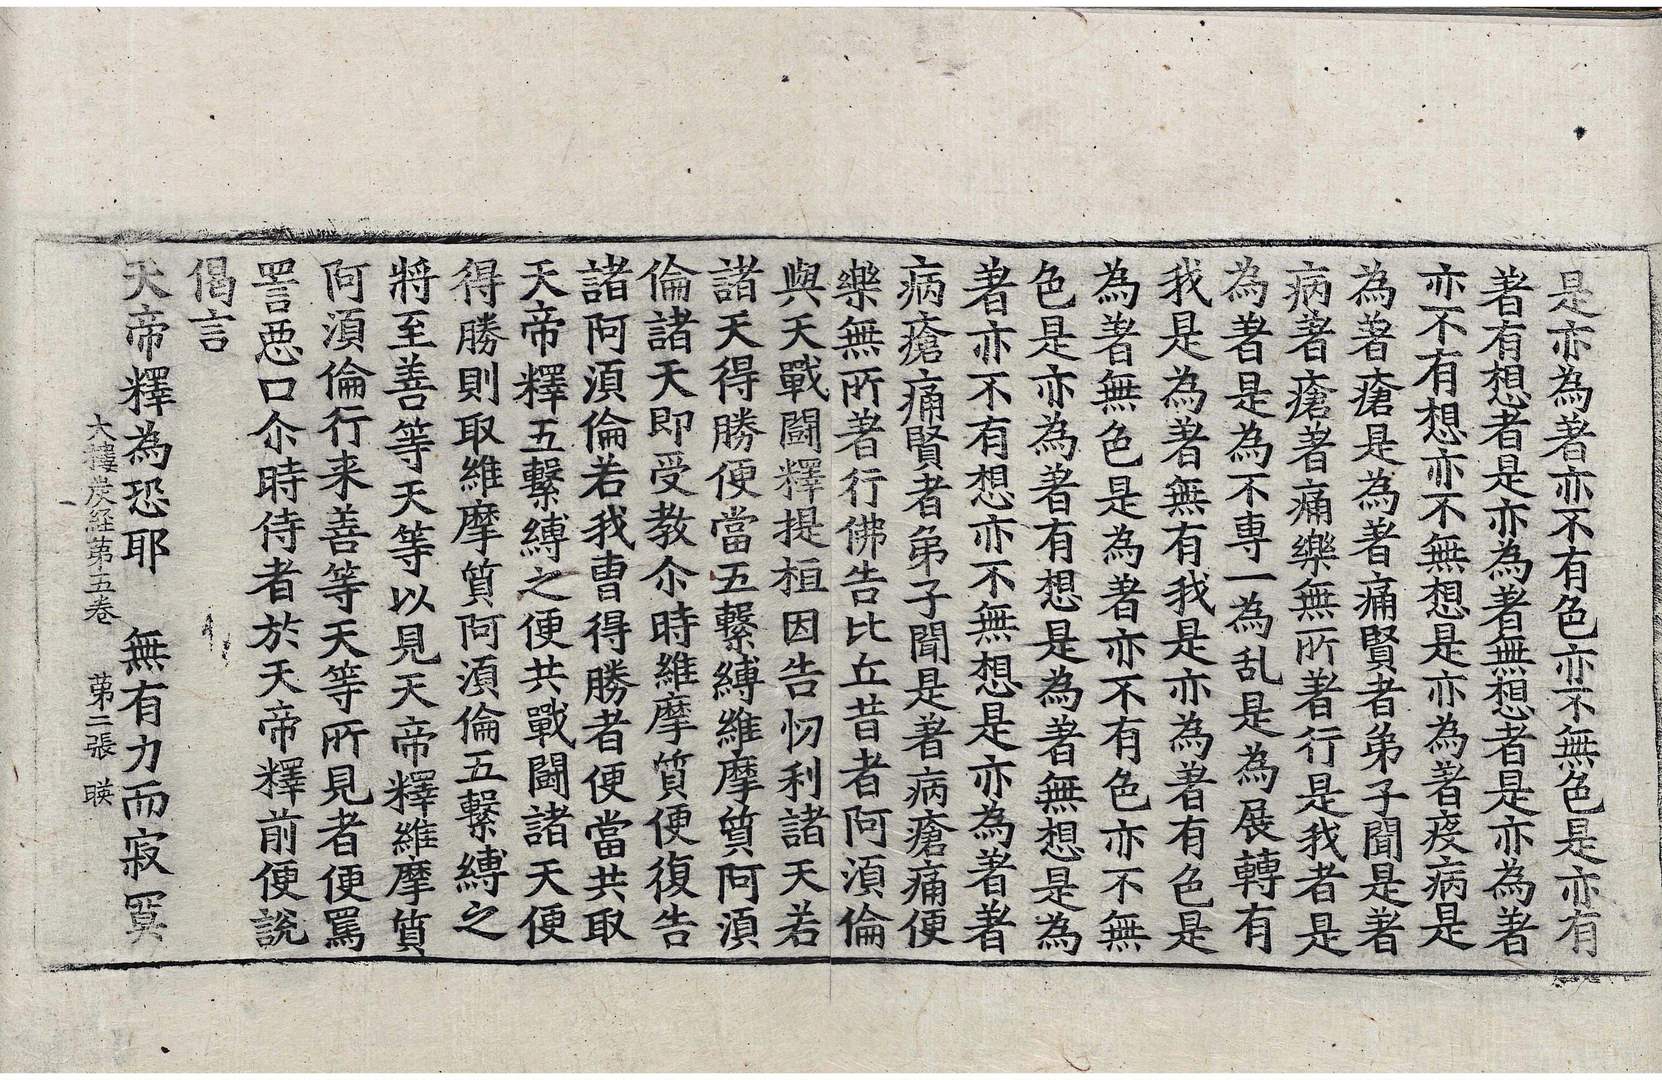 是亦為著亦不有色亦不無色是亦有
著有想者是亦為著無想者是亦為著
亦不有想亦不無想是亦為著疫病是
為著瘡是為著痛賢者弟子聞是著
病著瘡著痛樂無所著行是我者是
為著是為不專一為乱是為展轉有
我是為著無有我是亦為著有色是
為著無色是為著亦不有色亦不無
色是亦為著有想是為著無想是為
著亦不有想亦不無想是亦為著著
病瘡痛賢者弟子聞是著病瘡痛便
樂無所著行佛告比丘昔者阿湏倫
與天戰鬪釋提桓因告忉利諸天若
諸天得勝便當五繫縛維摩質阿湏
倫諸天即受教尒時維摩質便復告
諸阿湏倫若我曹得勝者便當共取
天帝釋五繫縛之便共戰鬪諸天便
得勝則取維摩質阿湏倫五繫縛之
將至善等天等以見天帝釋維摩質
阿湏倫行来善等天等所見者便罵
詈惡口尒時侍者於天帝釋前便說
偈言
天帝釋為恐耶　無有力而寂寞
大樓炭経第五卷　第二張　暎